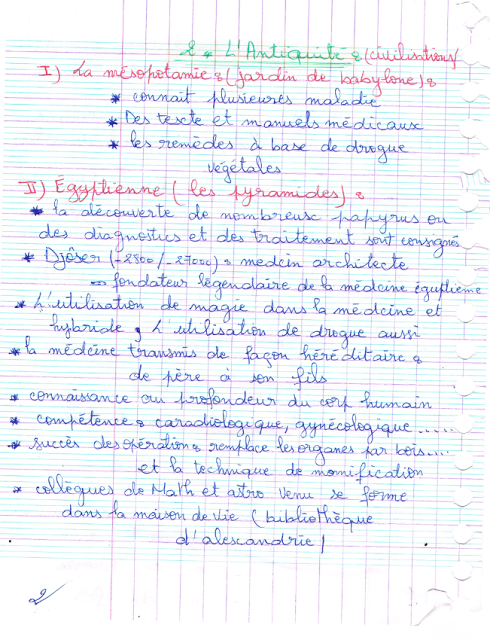 2 * L'Antiquité : (civilisations)
I) La mésopotamie : (jardin de babylone) :
* connait plusieures maladie
* Des texte et manuels médicaux
* les remèdes à base de drogue
végétales
II) Égyptienne (les pyramides) :
* la découverte de nombreux papyrus ou
des diagnostics et des traitement sont consignés
* Djôser (-2800/-2700) : medcin architecte
=> fondateur légendaire de la médcine éguptieme
* L'utilisation de magie dans la médcine et
hybride, L'utilisation de drogue aussi
* la médcine transmis de façon héréditaire :
de père à son fils
* connaissance en profondeur du corp humain
* compétence : caradiologique, gynécologique.....
* succès des opération : remplace les organes par bois....
et la technique de momification
* collègues de Math et astro venu se forme
dans la maison de vie (bibliothèque
d'alexcandrie)
2